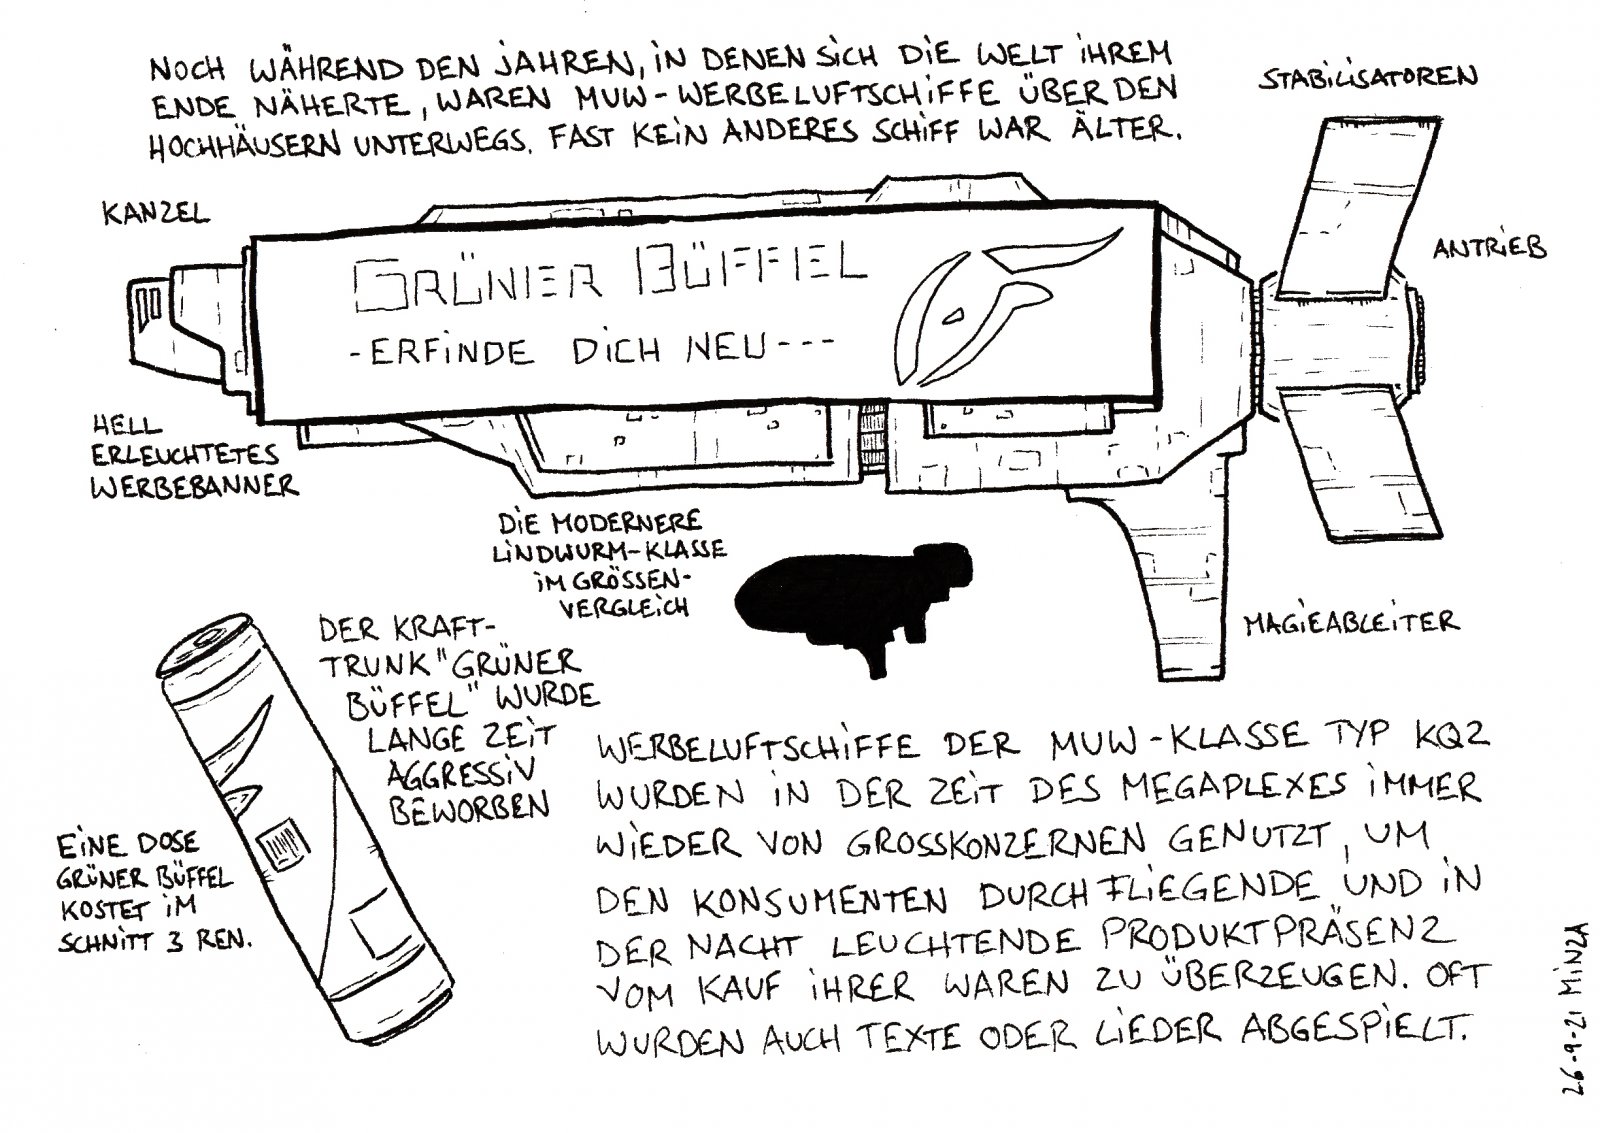 NOCH WÄHREND DEN JAHREN, IN DENEN SICH DIE WELT IHREM
ENDE NÄHERTE, WAREN MUW-WERBELUFTSCHIFFE ÜBER DEN
HOCHHÄUSERN UNTERWEGS. FAST KEIN ANDERES SCHIFF WAR ÄLTER.
STABILISATOREN
KANZEL
ANTRIEB
GRÜNER BÜFFEL
-ERFINDE DICH NEU---
HELL
ERLEUCHTETES
WERBEBANNER
DIE MODERNERE
LINDWURM-KLASSE
IM GRÖSSEN-
VERGLEICH
MAGIEABLEITER
DER KRAFT-
TRUNK "GRÜNER
BÜFFEL" WURDE
LANGE ZEIT
AGGRESSIV
BEWORBEN
EINE DOSE
GRÜNER BÜFFEL
KOSTET IM
SCHNITT 3 REN.
WERBELUFTSCHIFFE DER MUW-KLASSE TYP KQ2
WURDEN IN DER ZEIT DES MEGAPLEXES IMMER
WIEDER VON GROSSKONZERNEN GENUTZT, UM
DEN KONSUMENTEN DURCH FLIEGENDE UND IN
DER NACHT LEUCHTENDE PRODUKTPRÄSENZ
VOM KAUF IHRER WAREN ZU ÜBERZEUGEN. OFT
WURDEN AUCH TEXTE ODER LIEDER ABGESPIELT.
26-9-21 MINZA